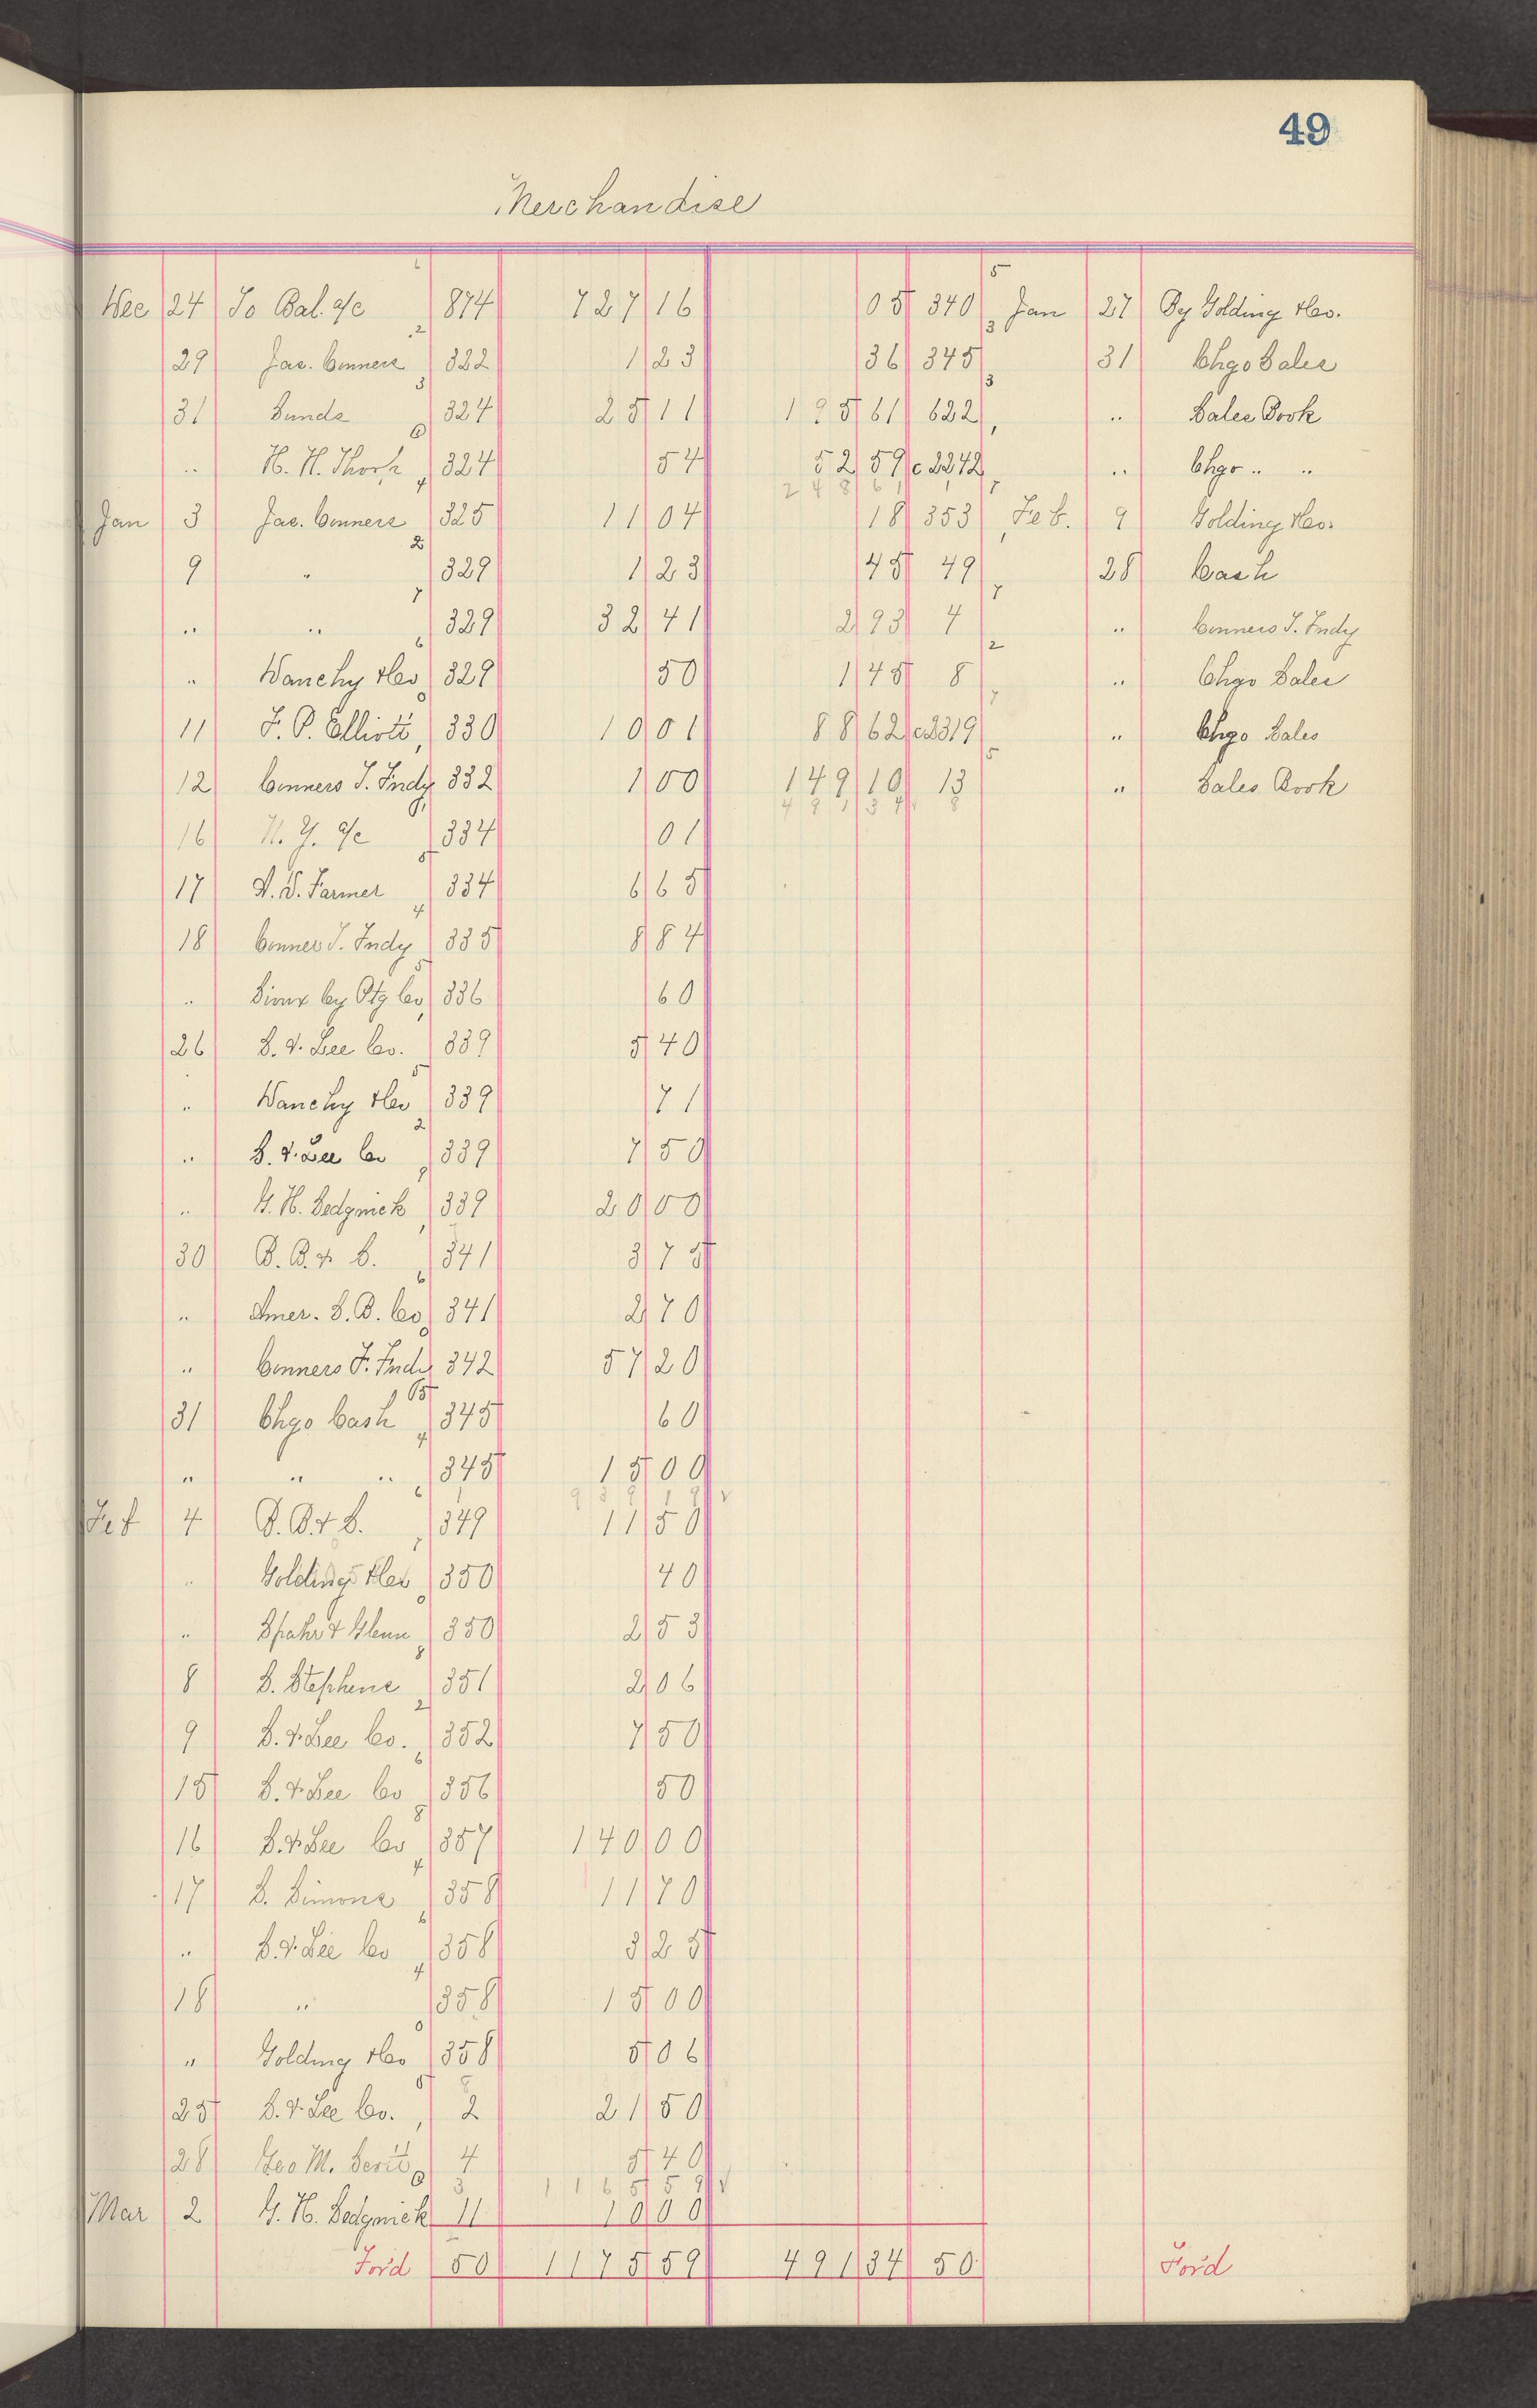 49
Merchandise
Dec 24 To Bal. a/c 874 727 16 05 340 Jan 27 By Golding &Co.
29 Jas. Conners 322 1 23 36 345 31 Chgo Sales
31 Sunds 324 25 11 195 61 622 " Sales Book
" H. H. Thorp 324 54 52 59 c 2242 " Chgo " "
248 61
Jan 3 Jas. Conners 325 11 04 18 353 Feb. 9 Golding &Co.
9 " 329 1 23 45 49 28 Cash
" " 329 32 41 2 93 4 " Conners T. Indy
" Wanchy &Co 329 50 1 45 8 " Chgo Sales
11 F. P. Elliott 330 10 01 88 62 c2319 " Chgo Sales
12 Conners T. Indy 332 1 00 149 10 13 " Sales Book
491 34
16 N. Y. a/c 334 01
17 A. S. Farmer 334 6 65
18 Conners T. Indy 335 8 84
" Sioux Cy Ptg Co 336 60
26 S. & Lee Co. 339 5 40
" Wanchy &Co 339 71
" S. & Lee Co 339 7 50
" G. H. Sedgwick 339 20 00
30 B. B. & S. 341 3 75
" Amer. S. B. Co 341 2 70
" Conners T. Indy 342 57 20
31 Chgo Cash 345 60
" " " 345 15 00
939 19 √
Feb 4 B. B. & S. 349 11 50
" Golding &Co 350 40
" Spahr & Glenn 350 2 53
8 S. Stephens 351 2 06
9 S. & Lee Co. 352 7 50
15 S. & Lee Co 356 50
16 S. & Lee Co 357 140 00
17 S. Simons 358 11 70
" S. & Lee Co 358 3 25
18 " 358 15 00
" Golding &Co 358 5 06
25 S. & Lee Co. 2 21 50
28 Geo M. 4 5 40
1165 59 √
Mar 2 G. H. Sedgwick 11 10 00
Ford 50 1175 59 491 34 50 Ford